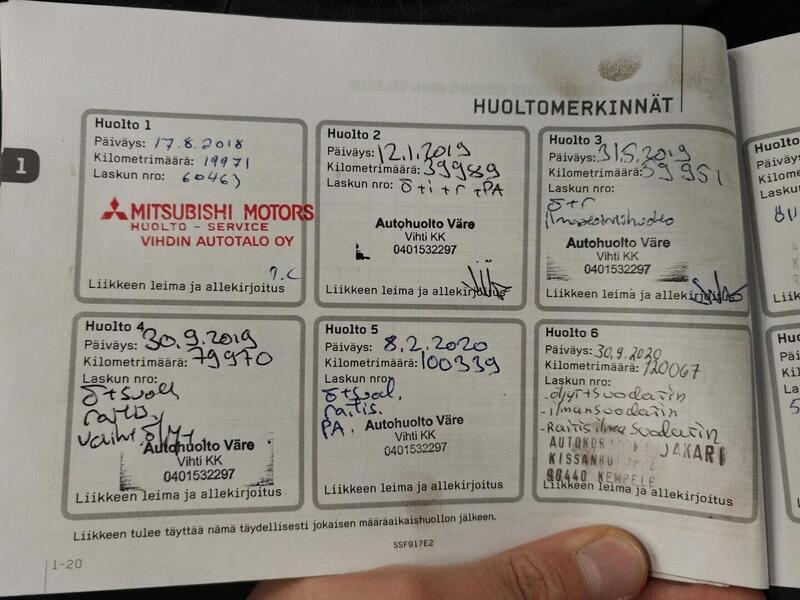 HUOLTOMERKINNÄT
1
Huolto 1
Päiväys: 17.8.2018
Kilometrimäärä: 19971
Laskun nro: 60463
MITSUBISHI MOTORS
HUOLTO - SERVICE
VIHDIN AUTOTALO OY
Liikkeen leima ja allekirjoitus
Huolto 2
Päiväys: 12.1.2019
Kilometrimäärä: 39989
Laskun nro: ö+i+r+PA
Autohuolto Väre
Vihti KK
0401532297
Liikkeen leima ja allekirjoitus
Huolto 3
Päiväys: 31.5.2019
Kilometrimäärä: 59951
Laskun nro:
ö+r
Autohuolto Väre
Vihti KK
0401532297
Liikkeen leima ja allekirjoitus
Huolto 4
Päiväys: 30.9.2019
Kilometrimäärä: 79970
Laskun nro:
Autohuolto Väre
Vihti KK
0401532297
Liikkeen leima ja allekirjoitus
Huolto 5
Päiväys: 8.2.2020
Kilometrimäärä: 100339
Laskun nro:
ö+suod.
raitis.
PA.
Autohuolto Väre
Vihti KK
0401532297
Liikkeen leima ja allekirjoitus
Huolto 6
Päiväys: 30.9.2020
Kilometrimäärä: 120067
Laskun nro:
-öljyt+suodatin
-ilmansuodatin
-Raitisilmasuodatin
JAKARI
90440 KEMPELE
Liikkeen leima ja allekirjoitus
Liikkeen tulee täyttää nämä täydellisesti jokaisen määräaikaishuollon jälkeen.
SSF917E2
1-20